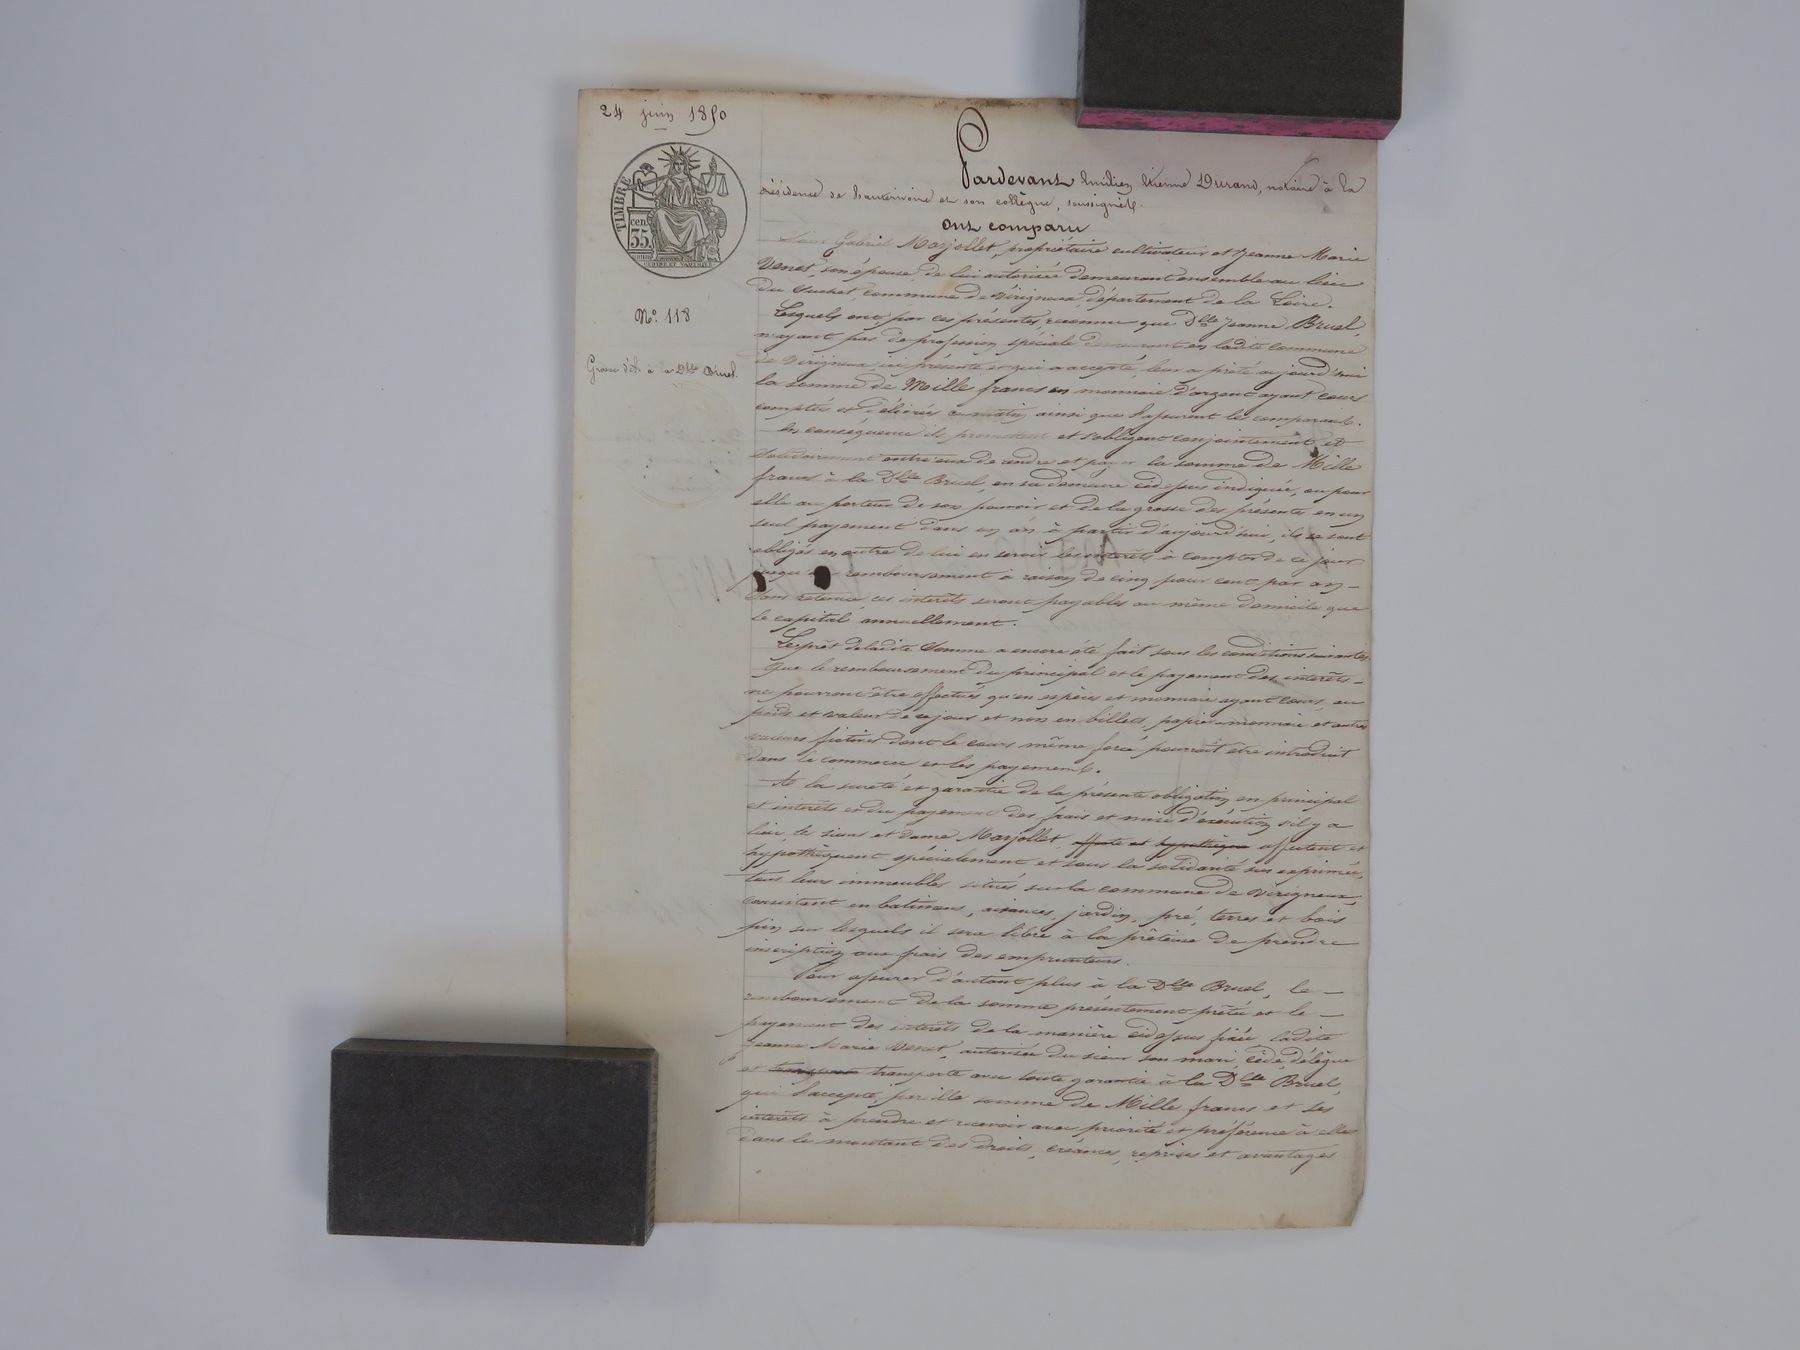 24 juin 1850
TIMBRE
cen.
35.
N° 118
Grosse dél. à la Dlle Bruel.
Pardevant Etienne Durand, notaire à la
résidence de et son collègue, soussignés.
ont comparu
Sieur Gabriel Marjollet, propriétaire cultivateur et Jeanne Marie
Venet, son épouse, de lui autorisée demeurant ensemble au lieu
du Suchet, commune de Virigneux, département de la Loire.
Lesquels ont, par ces présentes, reconnu que Dlle Jeanne Bruel,
n'ayant pas de profession spéciale demeurant en ladite commune
de Virigneux, ici présente et qui a accepté, leur a prêté aujourd'hui
la somme de Mille francs en monnaie d'argent ayant cours
comptés et délivrés ce matin ainsi que l'assurent les comparants.
En conséquence ils promettent et s'obligent conjointement et
solidairement entre eux de rendre et payer la somme de Mille
francs à la Dlle Bruel, en sa demeure ci dessus indiquée, ou pour
elle au porteur de son pouvoir et de la grosse des présentes en un
seul payement dans un an à partir d'aujourd'hui, ils se sont
obligés en outre de lui en servir les intérêts à compter de ce jour
jusqu' remboursement à raison de cinq pour cent par an –
sans retenue, ces intérêts seront payables au même domicile que
le capital annuellement.
Le prêt de ladite somme a encore été fait sous les conditions suivantes
que le remboursement du principal et le payement des intérêts –
ne pourront être effectués qu'en espèces et monnaie ayant cours, au
poids et valeur de ce jour et non en billets, papier-monnaie et autres
valeurs fictives dont le cours même forcé pourrait être introduit
dans le commerce et les payements.
A la sureté et garantie de la présente obligation en principal
et intérêts et du payement des frais et mise d'exécution s'il y a
lieu, les sieur et dame Marjollet, affecte et hypothèque affectent et
hypothèquent spécialement et sous la solidarité sus exprimée,
tous leurs immeubles situés sur la commune de Virigneux,
consistant en batimens, aisances, jardin, pré, terres et bois
pin sur lesquels il sera libre à la prêteuse de prendre
inscription aux frais des emprunteurs.
Pour assurer d'autant plus à la Dlle Bruel, le –
remboursement de la somme présentement prêtée et le –
payement des intérêts de la manière ci dessus fixée ladite
Jeanne Marie Venet, autorisée du sieur son mari, cède, délègue
et transporte avec toute garantie à la Dlle Bruel,
qui l'accepte, pareille somme de Mille francs et ses
intérêts à prendre et recevoir avec priorité et préférence à elle
dans le montant des droits, créances, reprises et avantages